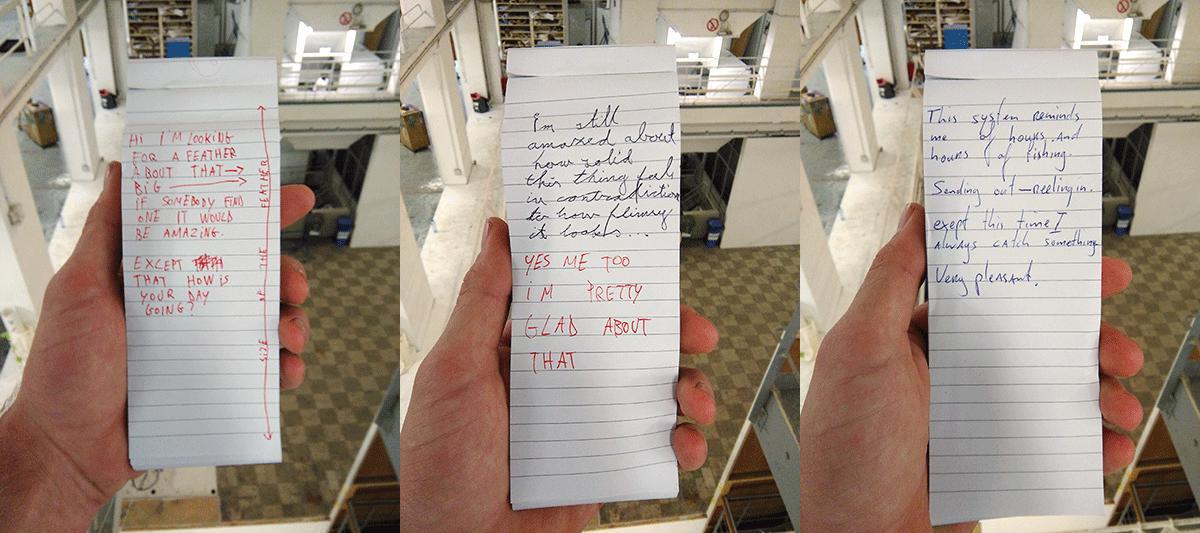 HI I'M LOOKING
FOR A FEATHER
ABOUT THAT →
BIG →
IF SOMEBODY FIND
ONE IT WOULD
BE AMAZING.
EXCEPT
THAT HOW IS
YOUR DAY
GOING?
SIZE OF THE FEATHER
I'm still
amazed about
how solid
this thing fals
in contradiction
to how flimsy
it looks....
YES ME TOO
I M PRETTY
GLAD ABOUT
THAT
This system reminds
me of hours and
hours of fishing.
Sending out — reeling in.
exept this time I
always catch something
Very pleasant.